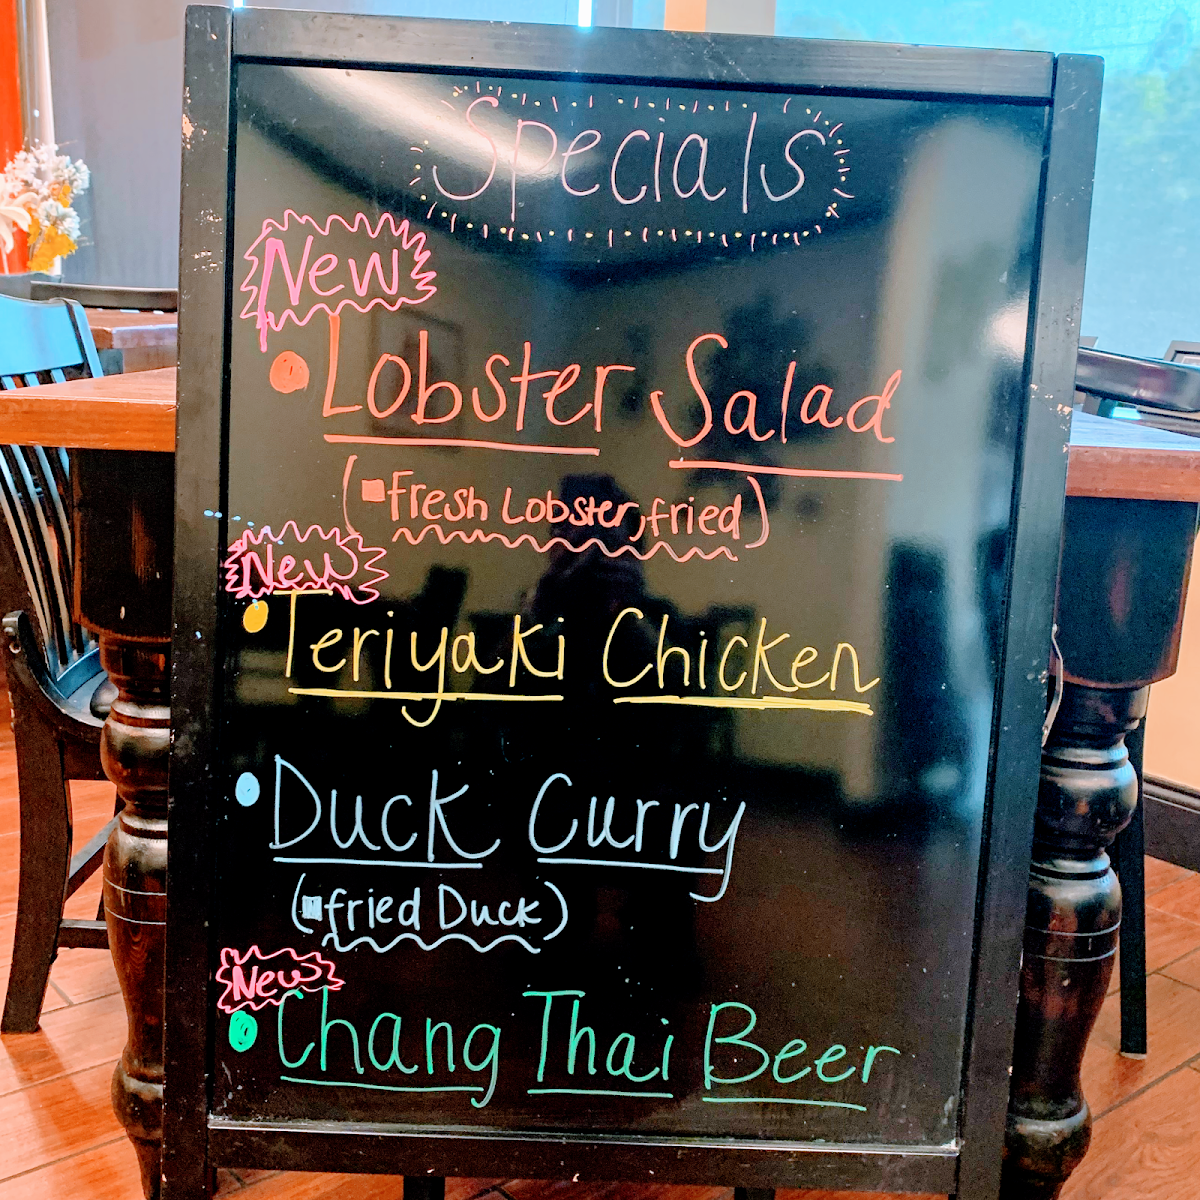 Specials
New
• Lobster Salad
(▪fresh Lobster, fried)
New
• Teriyaki Chicken
• Duck Curry
(▪fried Duck)
New
• Chang Thai Beer